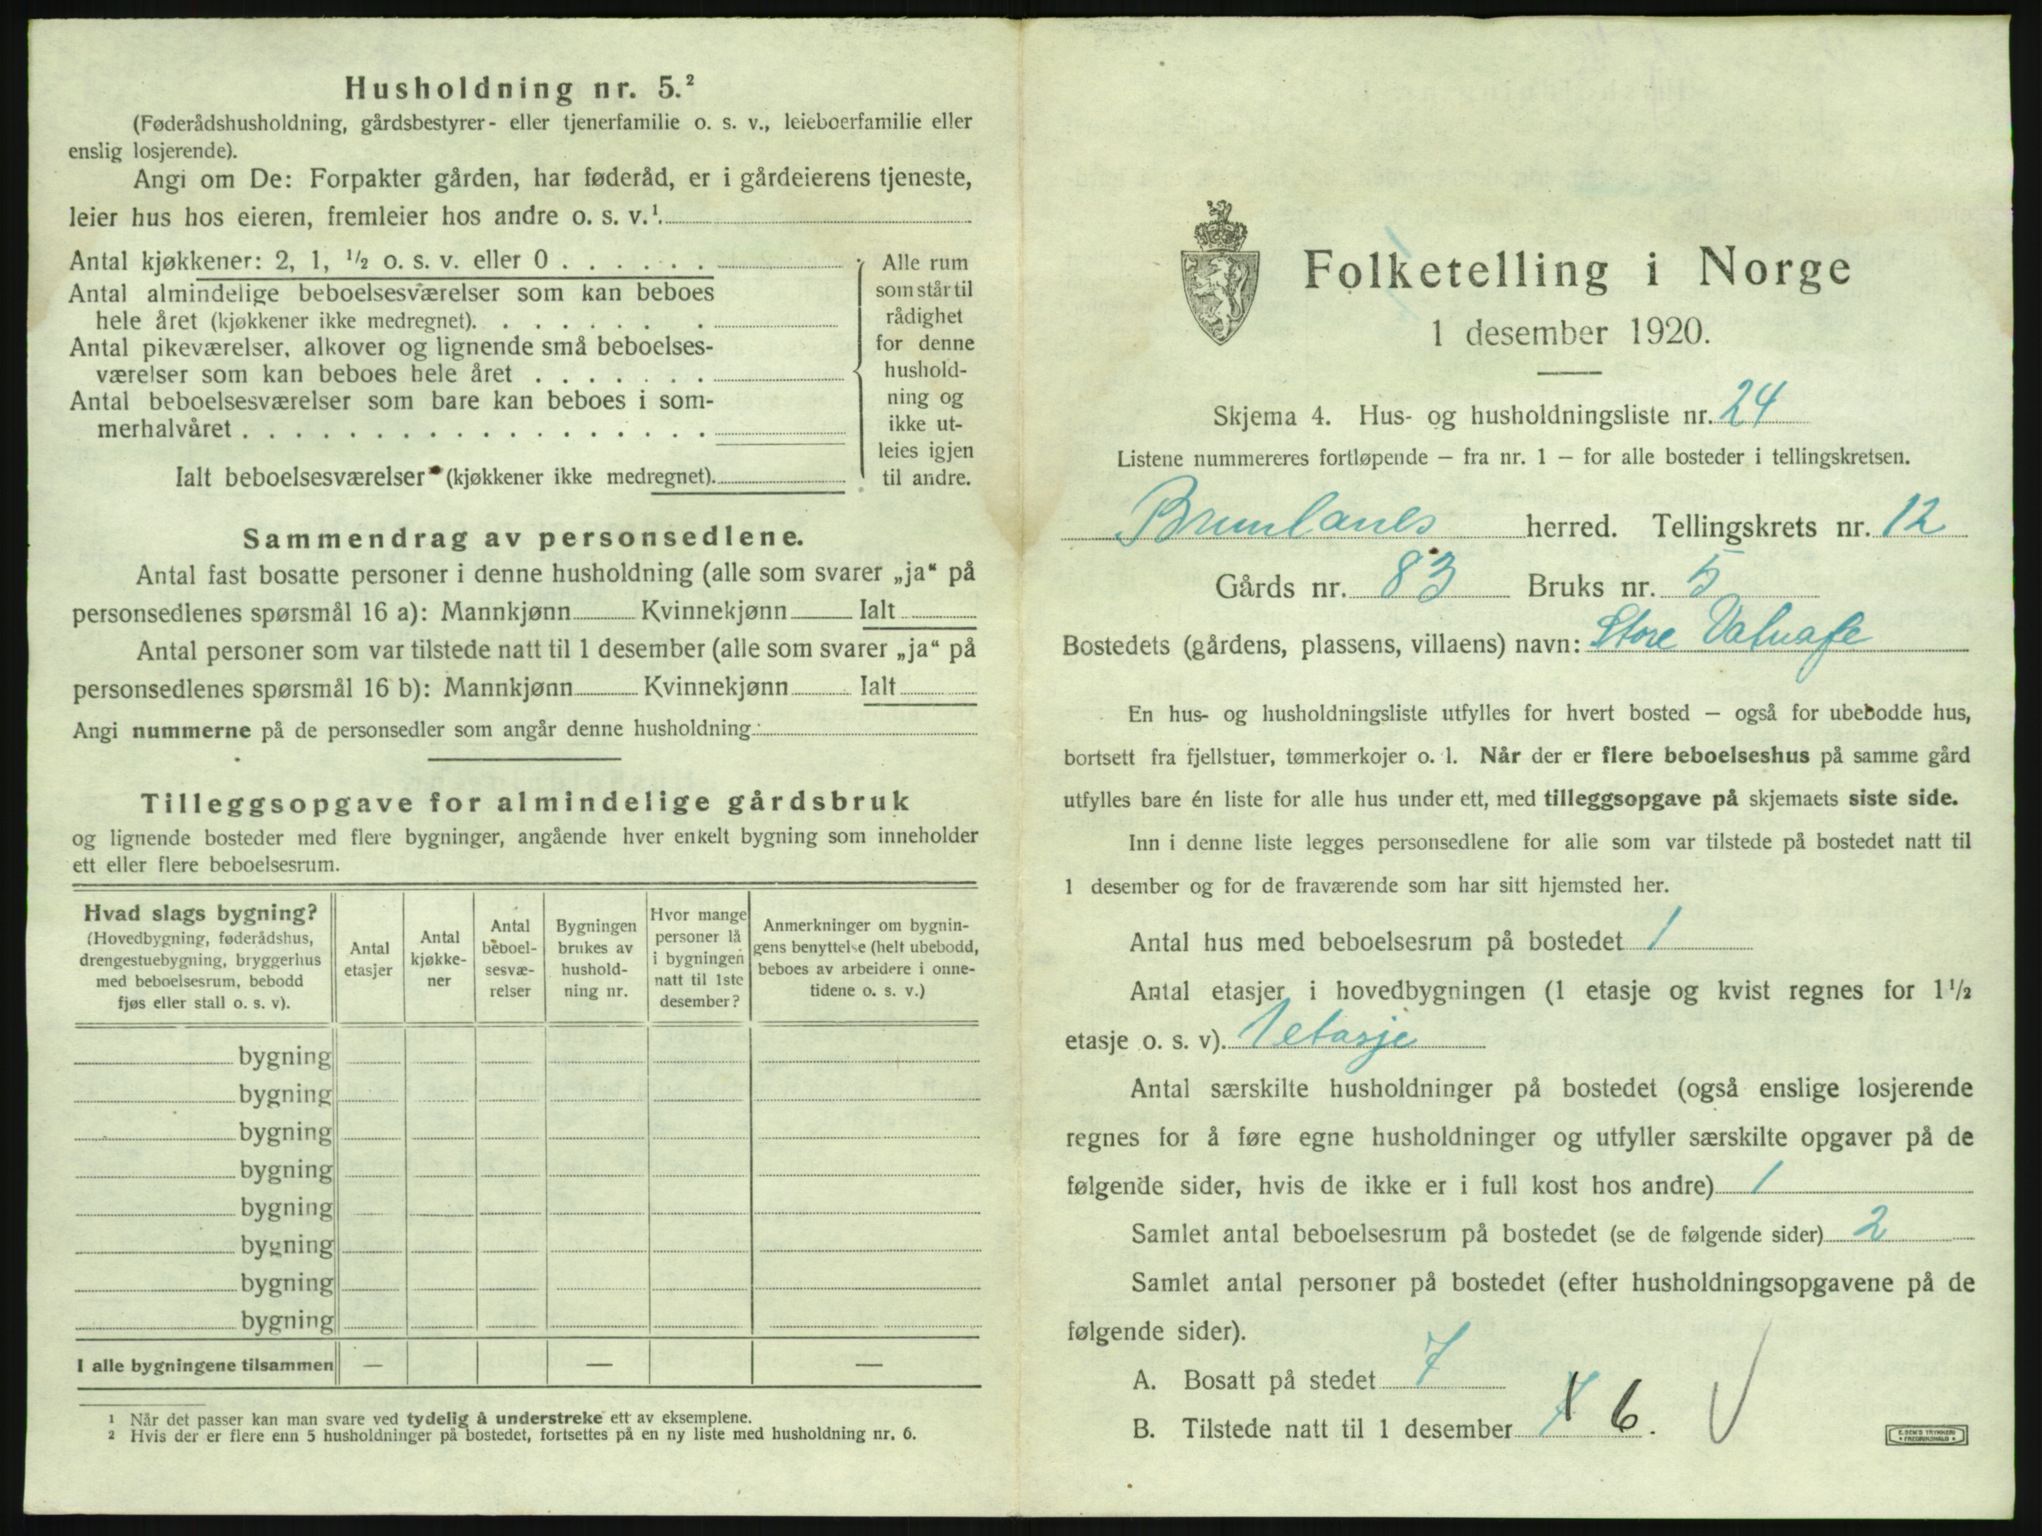 Husholdning nr. 5.²
(Føderådshusholdning, gårdsbestyrer- eller tjenerfamilie o. s. v., leieboerfamilie eller
enslig losjerende).
Angi om De: Forpakter gården, har føderåd, er i gårdeierens tjeneste,
leier hus hos eieren, fremleier hos andre o. s. v.¹
Antal kjøkkener: 2, 1, ½ o. s. v. eller 0 . . . . . .
Antal almindelige beboelsesværelser som kan beboes
hele året (kjøkkener ikke medregnet). . . . . . . .
Antal pikeværelser, alkover og lignende små beboelses-
værelser som kan beboes hele året . . . . . . .
Antal beboelsesværelser som bare kan beboes i som-
merhalvåret . . . . . . . . . . . . . . . . . .
Ialt beboelsesværelser (kjøkkener ikke medregnet).
Alle rum
som står til
rådighet
for denne
hushold-
ning og
ikke ut-
leies igjen
til andre.
Sammendrag av personsedlene.
Antal fast bosatte personer i denne husholdning (alle som svarer „ja“ på
personsedlenes spørsmål 16 a): Mannkjønn Kvinnekjønn Ialt
Antal personer som var tilstede natt til 1 desember (alle som svarer „ja“ på
personsedlenes spørsmål 16 b): Mannkjønn Kvinnekjønn Ialt
Angi nummerne på de personsedler som angår denne husholdning:
Tilleggsopgave for almindelige gårdsbruk
og lignende bosteder med flere bygninger, angående hver enkelt bygning som inneholder
ett eller flere beboelsesrum.
Hvad slags bygning?
(Hovedbygning, føderådshus,
drengestuebygning, bryggerhus
med beboelsesrum, bebodd
fjøs eller stall o. s. v).
Antal
etasjer
Antal
kjøkke-
ner
Antal
beboel-
sesvæ-
relser
Bygningen
brukes av
hushold-
ning nr.
Hvor mange
personer lå
i bygningen
natt til 1ste
desember?
Anmerkninger om bygnin-
gens benyttelse (helt ubebodd,
beboes av arbeidere i onne-
tidene o. s. v.)
bygning
bygning
bygning
bygning
bygning
bygning
bygning
bygning
I alle bygningene tilsammen — — —
¹ Når det passer kan man svare ved tydelig å understreke ett av eksemplene.
² Hvis der er flere enn 5 husholdninger på bostedet, fortsettes på en ny liste med husholdning nr. 6.
Folketelling i Norge
1 desember 1920.
Skjema 4. Hus- og husholdningsliste nr. 24
Listene nummereres fortløpende — fra nr. 1 — for alle bosteder i tellingskretsen.
Brunlanes herred. Tellingskrets nr. 12
Gårds nr. 83 Bruks nr. 5
Bostedets (gårdens, plassens, villaens) navn: Store
En hus- og husholdningsliste utfylles for hvert bosted — også for ubebodde hus,
bortsett fra fjellstuer, tømmerkojer o. l. Når der er flere beboelseshus på samme gård
utfylles bare én liste for alle hus under ett, med tilleggsopgave på skjemaets siste side.
Inn i denne liste legges personsedlene for alle som var tilstede på bostedet natt til
1 desember og for de fraværende som har sitt hjemsted her.
Antal hus med beboelsesrum på bostedet 1
Antal etasjer i hovedbygningen (1 etasje og kvist regnes for 1½
etasje o. s. v). 1 etasje
Antal særskilte husholdninger på bostedet (også enslige losjerende
regnes for å føre egne husholdninger og utfyller særskilte opgaver på de
følgende sider, hvis de ikke er i full kost hos andre) 1
Samlet antal beboelsesrum på bostedet (se de følgende sider) 2
Samlet antal personer på bostedet (efter husholdningsopgavene på de
følgende sider).
A. Bosatt på stedet 7
B. Tilstede natt til 1 desember 6.
E. SEM'S TRYKKERI
FREDRIKSHALD